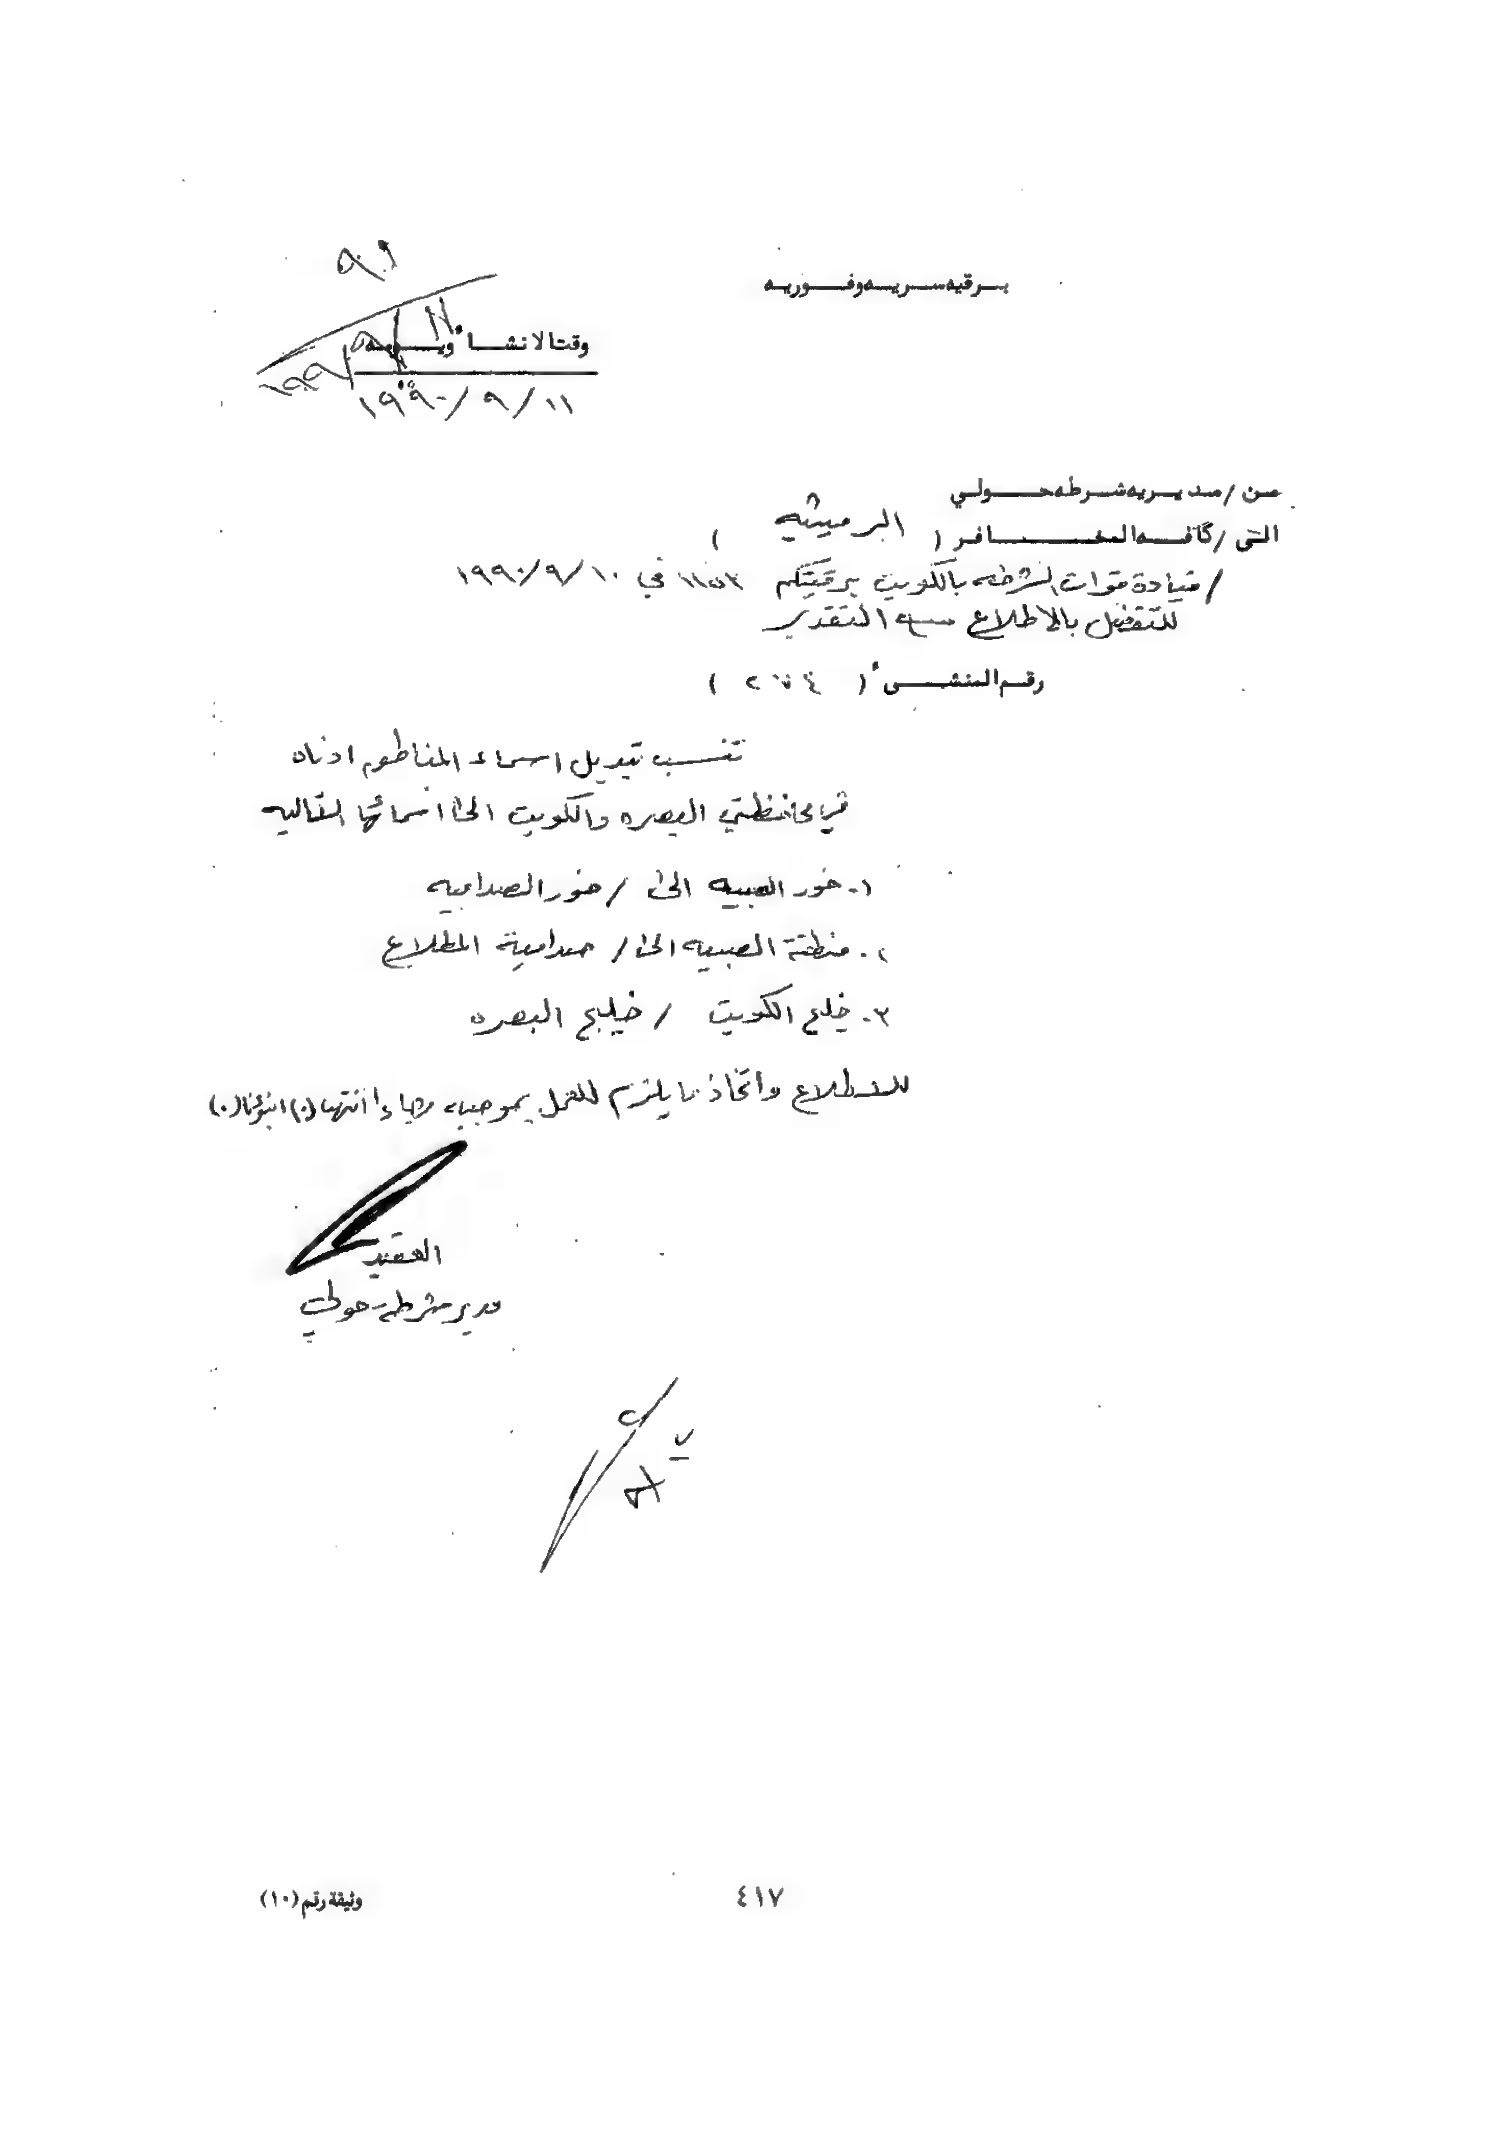 برقيه سريه وفوريه
٩١
وقت الانشاء ويومه
١١
١٩٩٠/٩/١١
من / مديريه شرطه حولي
الى / كافه المخافر ( الرميثيه )
/ قيادة قوات الشرطه بالكويت برقيتكم في ١٩٩٠/٩/١٠
للتفضل بالاطلاع مع التقدير
رقم المنشىء ( ٢٦٤ )
تنسب تبديل اسماء المناطق ادناه
في محافظتي البصره والكويت الى اسمائها التاليه
١- خور الصبيه الى / خور الصداميه
٢- منطقة الصبيه الى / صدامية المطلاع
٣- خليج الكويت / خليج البصره
للاطلاع واتخاذ ما يلزم للعمل بموجبه رجاءا انتهت (٠) انبؤنا (٠)
العقيد
مدير شرطة حولي
٤١٧
وثيقة رقم (١٠)